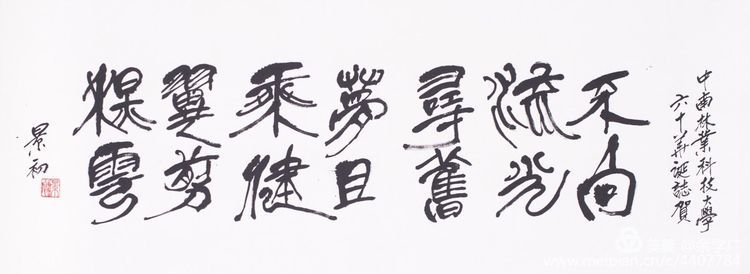 中南林業科技大學
六十華誕誌賀
不向
流光
尋舊
夢且
乘健
翼剪
雲
景初
美篇
www.meipian.cn/c/4407784